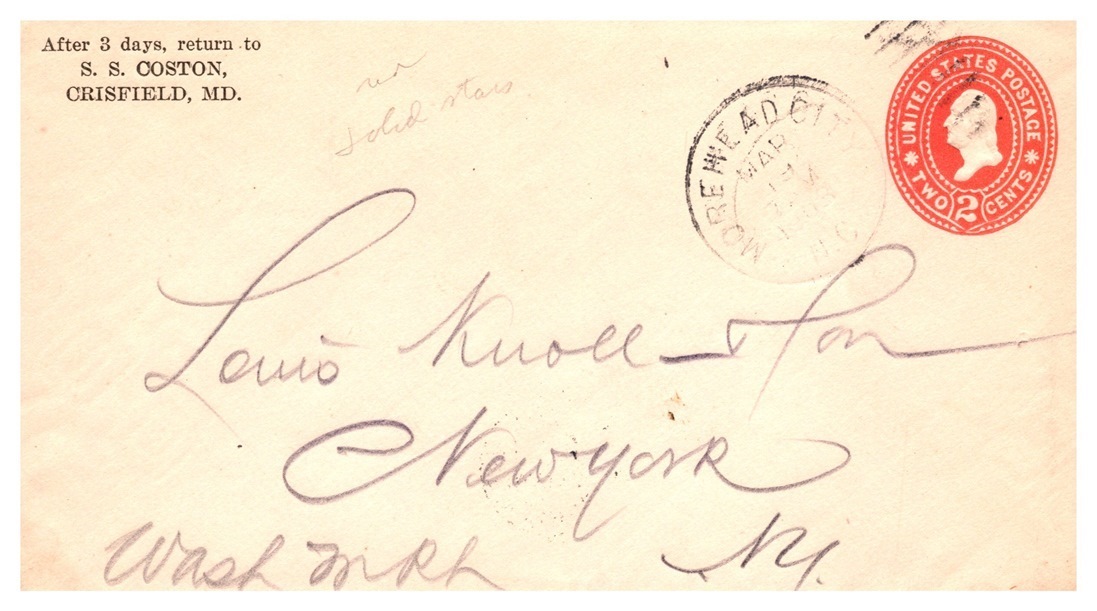 After 3 days, return to
S. S. COSTON,
CRISFIELD, MD.
red
solid stars
MOREHEAD CITY
MAR
N.C.
UNITED STATES POSTAGE
TWO 2 CENTS
Louis Knoll & Son
New York
Wash Mkt
N.Y.